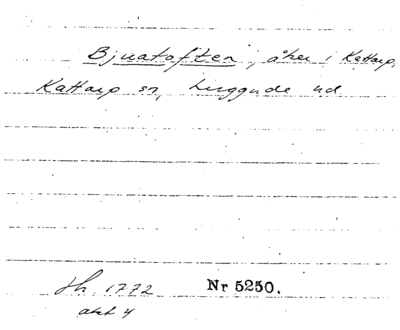 Bjuatoften, åker i Kattarp,
Kattarp sn, Luggude hd
Sk. 1772 Nr 5250.
akt 4